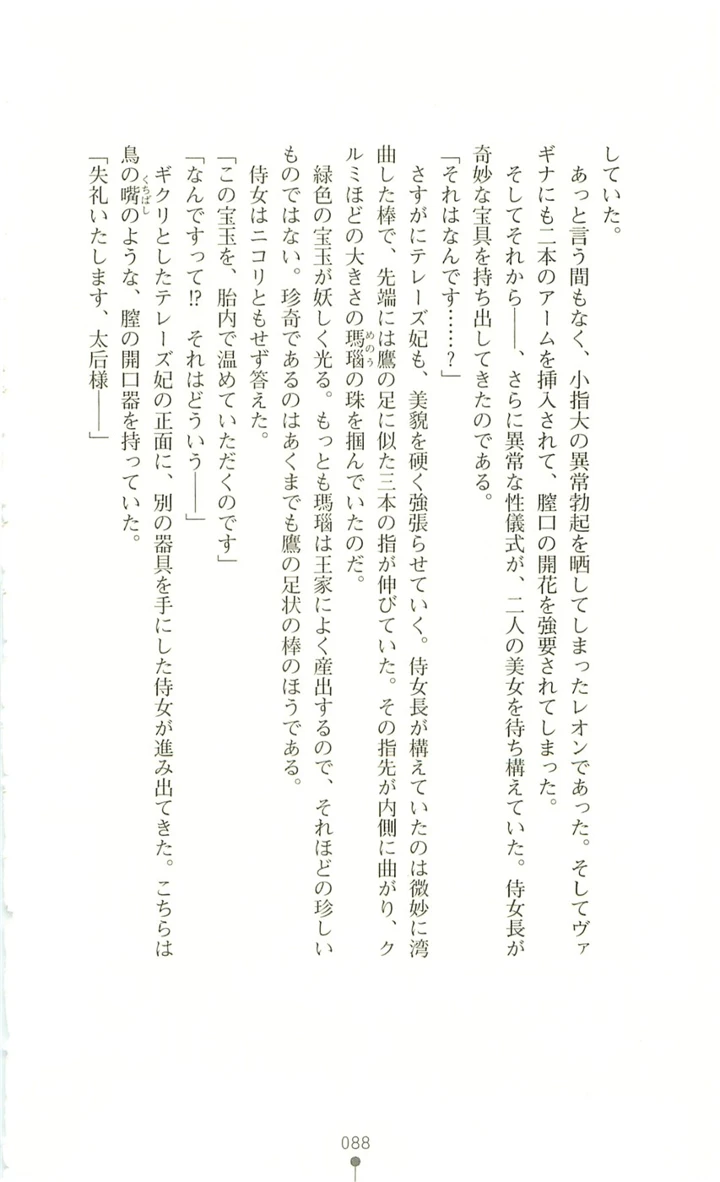 していた。
　あっと言う間もなく、小指大の異常勃起を晒してしまったレオンであった。そしてヴァ
ギナにも二本のアームを挿入されて、膣口の開花を強要されてしまった。
　そしてそれから――、さらに異常な性儀式が、二人の美女を待ち構えていた。侍女長が
奇妙な宝具を持ち出してきたのである。
「それはなんです……？」
　さすがにテレーズ妃も、美貌を硬く強張らせていく。侍女長が構えていたのは微妙に湾
曲した棒で、先端には鷹の足に似た三本の指が伸びていた。その指先が内側に曲がり、ク
ルミほどの大きさの瑪瑙の珠を掴んでいたのだ。
めのう
　緑色の宝玉が妖しく光る。もっとも瑪瑙は王家によく産出するので、それほどの珍しい
ものではない。珍奇であるのはあくまでも鷹の足状の棒のほうである。
　侍女はニコリともせず答えた。
「この宝玉を、胎内で温めていただくのです」
「なんですって!?　それはどういう――」
　ギクリとしたテレーズ妃の正面に、別の器具を手にした侍女が進み出てきた。こちらは
鳥の嘴のような、膣の開口器を持っていた。
くちばし
「失礼いたします、太后様――」
088